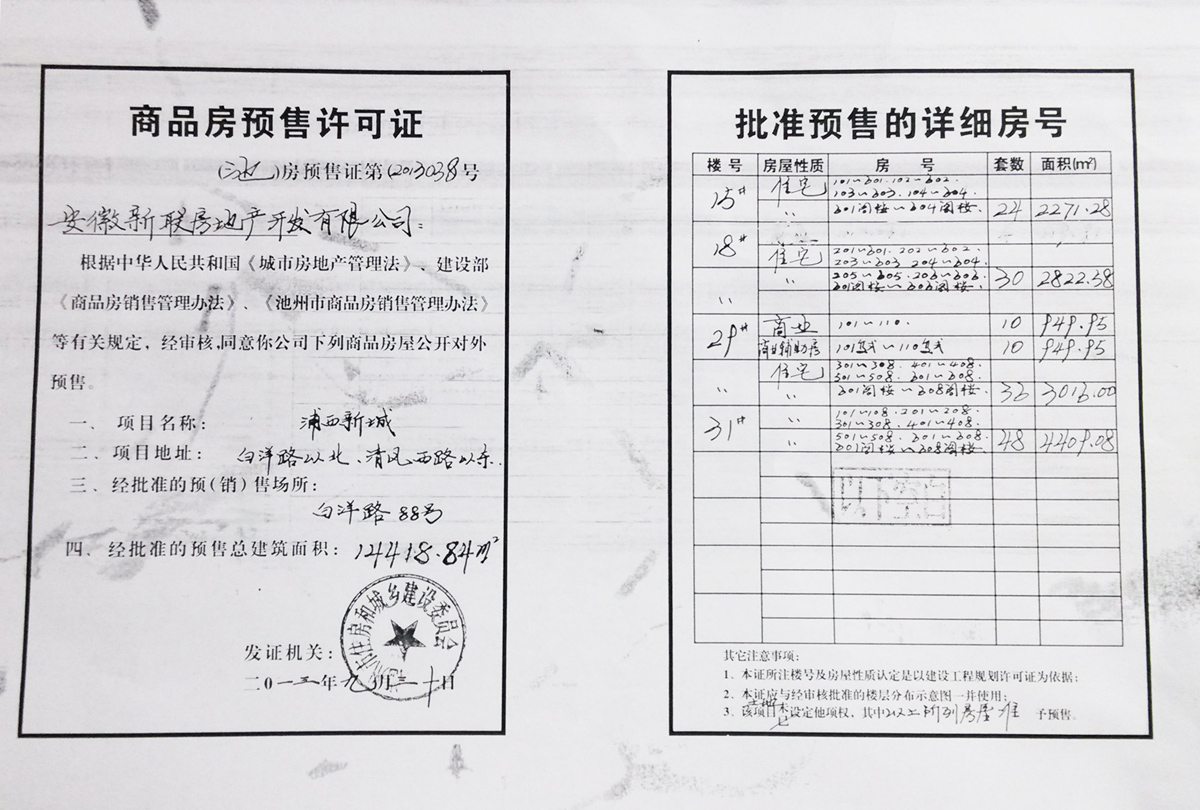 商品房预售许可证
(池)房预售证第(2013038号
安徽新联房地产开发有限公司:
根据中华人民共和国《城市房地产管理法》、建设部
《商品房销售管理办法》、《池州市商品房销售管理办法》
等有关规定,经审核,同意你公司下列商品房屋公开对外
预售。
一、项目名称: 浦西新城
二、项目地址: 白洋路以北、清风西路以东.
三、经批准的预(销)售场所:
白洋路88号
四、经批准的预售总建筑面积: 14418.84m²
市住房和城乡建设委员会
发证机关:
二0一三年九月三十日
批准预售的详细房号
楼号 房屋性质 房号 套数 面积(m²)
15# 住宅 101~601.102~602.
103~603.104~604.
〃 601阁楼~604阁楼. 24 2271.28
18# 住宅 201~601.202~602.
203~603.204~604.
〃 205~605.206~606.
601阁楼~606阁楼. 30 2822.58
29# 商业 101~110. 10 949.95
商业辅助房 101~110 10 949.95
住宅 301~308.401~408.
501~508.601~608.
〃 〃 601阁楼~608阁楼. 3013.00
31# 〃 101~108.201~208.
301~308.401~408.
〃 501~508.601~608.
601阁楼~608阁楼. 48 4409.08
其它注意事项:
1、本证所注楼号及房屋性质认定是以建设工程规划许可证为依据;
2、本证应与经审核批准的楼层分布示意图一并使用;
3、该项目土地已设定他项权,其中以上所列房屋准予预售。